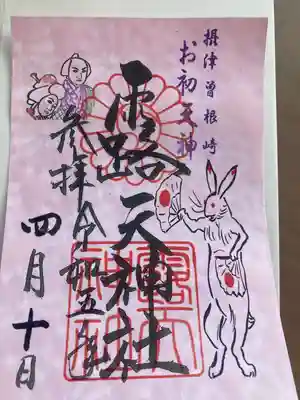 摂津曽根崎
お初天神
露天神社
奉拝
令和五年
四月十日